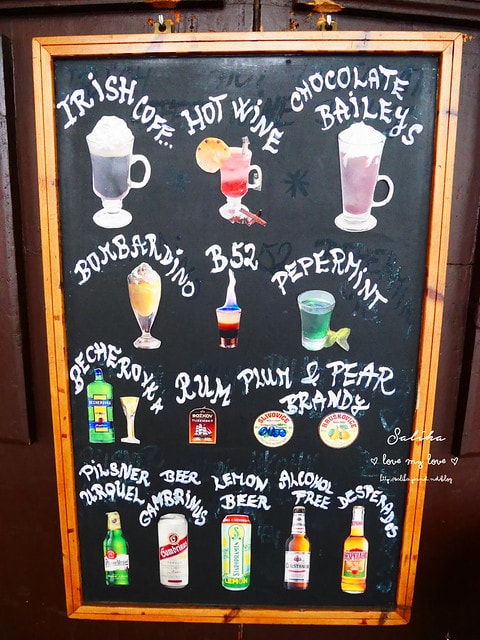 IRISH COFF...
HOT WINE
CHOCOLATE
BAILEYS
BOMBARDINO
B52
PEPERMINT
BECHEROVKA
RUM
PLUM & PEAR
BRANDY
BOŽKOV
SLIVOVICE
HRUŠKOVICE
PILSNER
URQUEL
BEER
GAMBRINUS
LEMON
BEER
ALCOHOL
FREE
DESPERADOS
Gambrinus
STAROPRAMEN
LEMON
Saliha
♡ love my love ♡